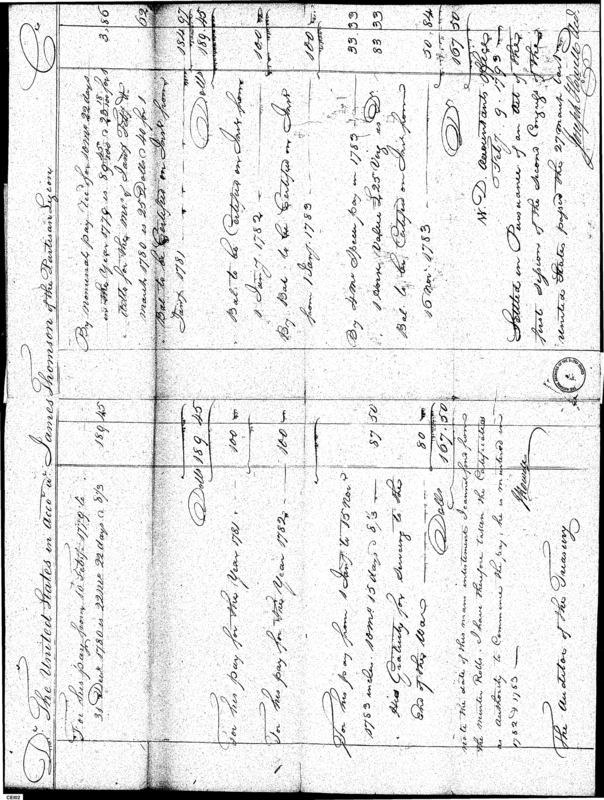 Dr. The United States in Acco't w. James Thomson of the Partisan Legion Cr.
For his pay from 10 Feby 1779 to
31 Decr 1780 is 22 Mo 22 days @ 8/3 189.45
Dolls 189.45
For his pay for the Year 1781 100
For his pay for the Year 1782 100
For his pay from 1 Jany to 15 Nov
1783 inclu. 10 Mo 15 days @ 8/3 87.50
His Gratuity for serving to the
End of the War 80
Dolls 167.50
Note the date of this mans inlistment I cannot find from
the Muster Rolls. I have therefore taken the Certificates
as Authority to Commence the pay; he is mustered in
1782 & 1783
J Howell
The Auditor of the Treasury
By nominal pay Recd for 10 Mo 22 days
in the Year 1779 is 89.45 @ 23.18 3.86
Dolls for the Mos of Jany Feby &
March 1780 is 25 Dolls @ 40 for 1 .62
Bal to be Certified on Int from
Jany 1781 184.97
Dolls 189.45
Bal. to be Certified on Int from
1 Jany 1782 100
By Bal. to be Certified on Int
from 1 Jany 1783 100
By 4 Mo Specie pay in 1783 33.33
Bal to be Certified on Int from
15 Nov. 1783 50.84
Dolls 167.50
W. D. Accountants Office
Feby 9. 1793
Settled in Pursuance of an Act of the
first session of the Second Congress of the
United States passed the 27 March last
Joseph Howell Acct.
CEI02